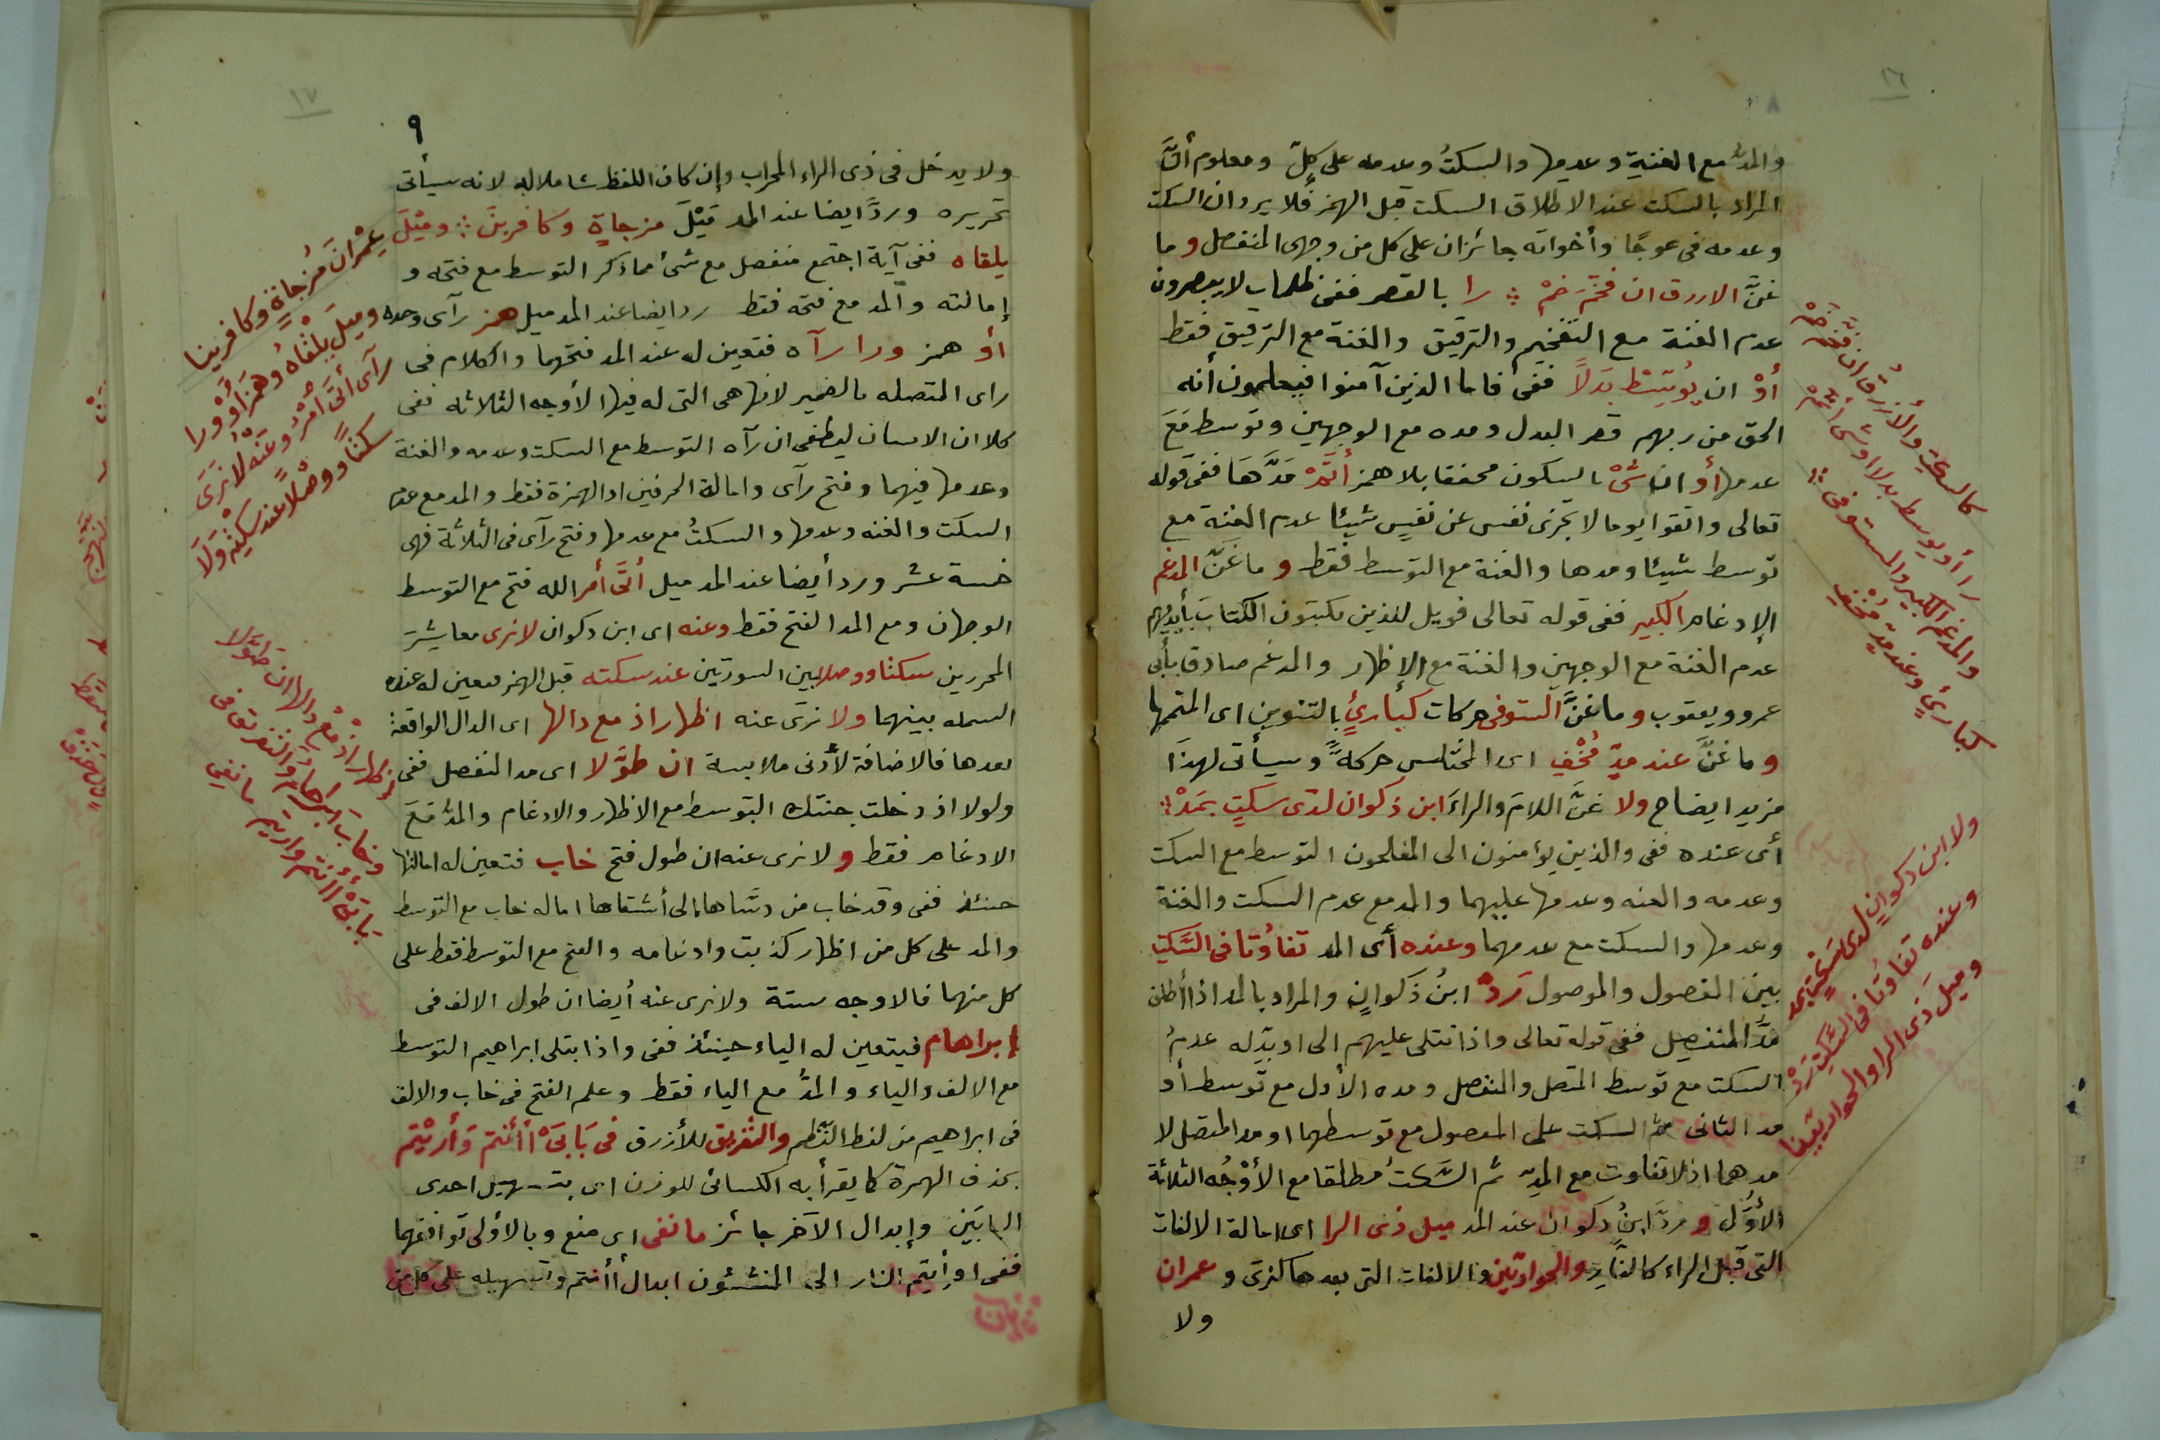 ١٦
والمدُّ مع الغنة وعدمها والسكتُ وعدمه على كلّ ومعلوم أنَّ
المراد بالسكت عند الاطلاق السكت قبل الهمز فلا يرد ان السكت
وعدمه فى عوجًا وأخواته جائزان على كل من وجهى المنفصل وما
غنَّ الازرق ان فخَّمَ ضمْ ؞ را بالقصر ففى ظلمات لا يبصرون
عدم الغنة مع التفخيم والترقيق والغنة مع الترقيق فقط
أوْ ان يُوسِّطْ بَدلاً ففى فاما الذين آمنوا فيعلمون أنه
الحق من ربهم قصر البدل ومده مع الوجهين وتوسط مَعَ
عدمها أو ان شىْ بالسكون مخففا بلا همز أتَمّْ مَدَّهَا ففى قوله
تعالى واتقوا يوما لا تجزى نفس عن نفسٍ شيئا عدم الغنة مع
توسط شيئا ومدها والغنة مع التوسط فقط وما غنَّ المدغم
الإدغام الكبير ففى قوله تعالى فويل للذين يكتبون الكتابَ بأيديهم
عدم الغنة مع الوجهين والغنة مع الإظهار والمدغم صادق بأبى
عمرو ويعقوب وما غنَّ المستوفى حركات كبأرئٍ بالتنوين اى المتمها
وما غنَّ عند مدٍّ مُخْفٍ اى المختلس حركةً وسيأتى لهذَا
مزيد ايضاح ولا غنَّ اللامَ والراءَ ابن ذكوان لدى سكتٍ بمَدْ ؞
أى عنده ففى والذين يؤمنون الى المفلحون التوسط مع السكت
وعدمه والغنه وعدمها عليهما والمد مع عدم السكت والغنة
وعدمها والسكت مع عدمهما وعنده أى المد تفاوُتا فى السَّكتِ
بين المفصول والموصول رَدْ ابنُ ذكوانٍ والمراد بالمد اذا أطلق
مدُّ المنفصِل ففى قوله تعالى واذا تتلى عليهم الى او بدّله عدمُ
السكت مع توسط المتصل والمنفصل ومده الأول مع توسط أو
مد الثانى ثم السكت على المفصول مع توسطهما او مد المتصل لا
مدهما اذ لا تفاوت مع المدِّ ثم السَّكتُ مطلقا مع الأوْجُه الثلاثة
الأُوَّل و ردَّ ابنُ ذكوان عند المد ميل ذى الرا اى امالة الالفات
التى قبل الراء كالنَّارِ والحواريّين والالفات التى بعدها كنرَى و عمران
ولا
كالسعىِ والأزرقُ ان فخَّمَ ضمْ
را أو يوسط بدلا او شى أتَمّْ
والمدغم الكبير والمستوفى ؞
كبارئٍ وعند مدٍّ مُخْفٍ
ولا ابن ذكوانٍ لدى سَكْتٍ بمد
وعنده تفاوُتا فى السَّكتِ رَدْ
وميلَ ذى الرا والحواريّينا
١٧
٩
ولا يدخل فى ذى الراء المحراب وإن كان اللفظ شاملا له لانه سيأتى
تحريره وردَّ ايضا عند المد مَيْلَ مزجاةٍ وكافرينَ ؞ وميْلَ
يلقاه ففى آية اجتمع منفصل مع شئ مما ذكر التوسط مع فتحه و
إمالته والمد مع فتحه فقط رد ايضا عند المد ميل همز رآى وحده
أو همز ورا رآه فتعين له عند المد فتحهما والكلام فى
راى المتصله بالضمير لانها هى التى له فيها الأوجه الثلاثه ففى
كلا ان الانسان ليطغى ان رآه التوسط مع السكت وعدمه والغنة
وعدمها فيهما وفتح رآى وامالة الحرفين او الهمزة فقط والمد مع عدم
السكت والغنه وعدمها والسكتُ مع عدمها وفتح رآى فى الثلاثة فهى
خمسة عشر ورد أيضا عند المد ميل أتَى أمر الله فتح مع التوسط
الوجهان ومع المد الفتح فقط وعنه اى ابن ذكوان لا نرى معاشِرَ
المحررين سكتا ووصلا بين السورتين عند سكته قبل الهمز فتعين له عنده
البسمله بينهما ولا نرَى عنه اظهار اذ مع دالها اى الدال الواقعة
بعدها فالاضافة لأدنى ملابسة ان طوَّلا اى مد المنفصل ففى
ولولا اذ دخلت جنتك التوسط مع الاظهار والادغام والمدُّ مَعَ
الادغام فقط و لا نرى عنه ان طول فتح خاب فتعين له امالتها
حينئذ ففى وقد خاب من دسَّاها الى أشقاها اماله خاب مع التوسط
والمد على كل من اظهار كذبت وادغامه والفتح مع التوسط فقط على
كل منهما فالاوجه ستة ولا نرى عنه أيضا ان طول الالف فى
إبراهام فيتعين له الياء حينئذ ففى واذا بتلى ابراهيم التوسط
مع الالف والياء والمدُّ مع الياء فقط وعلم الفتح فى خاب والالف
فى ابراهيم من لفظ النَّظم والتفريق للأزرق فى بَابَىْ أأنتم وَأريْتم
بحذف الهمزة كما يقرأ به الكسائى للوزن اى بتسهيل احدى
البابَين وإبدال الآخر جائز ما نفى اى منع وبالأولى توافقهما
ففى افرأيتم النار الى المنشئون ابدال أأنتم وتسهيله على كل من
عِمْرَانَ مُزجاةٍ وكافرينا
وميلَ يلْقَاهُ وهَمْزَ أوْ ورا
رآى أتَى أمْرُ وعَنْهُ لا نَرَى
سكتًا ووصْلاً عند سكْتِهِ وَلَا
إظهار إذْ معْ دالها ان طوَّلا
وخابَ ابراهامَ والتفريقُ فى
بابَىْ أأنتم واريْتم ما نفى